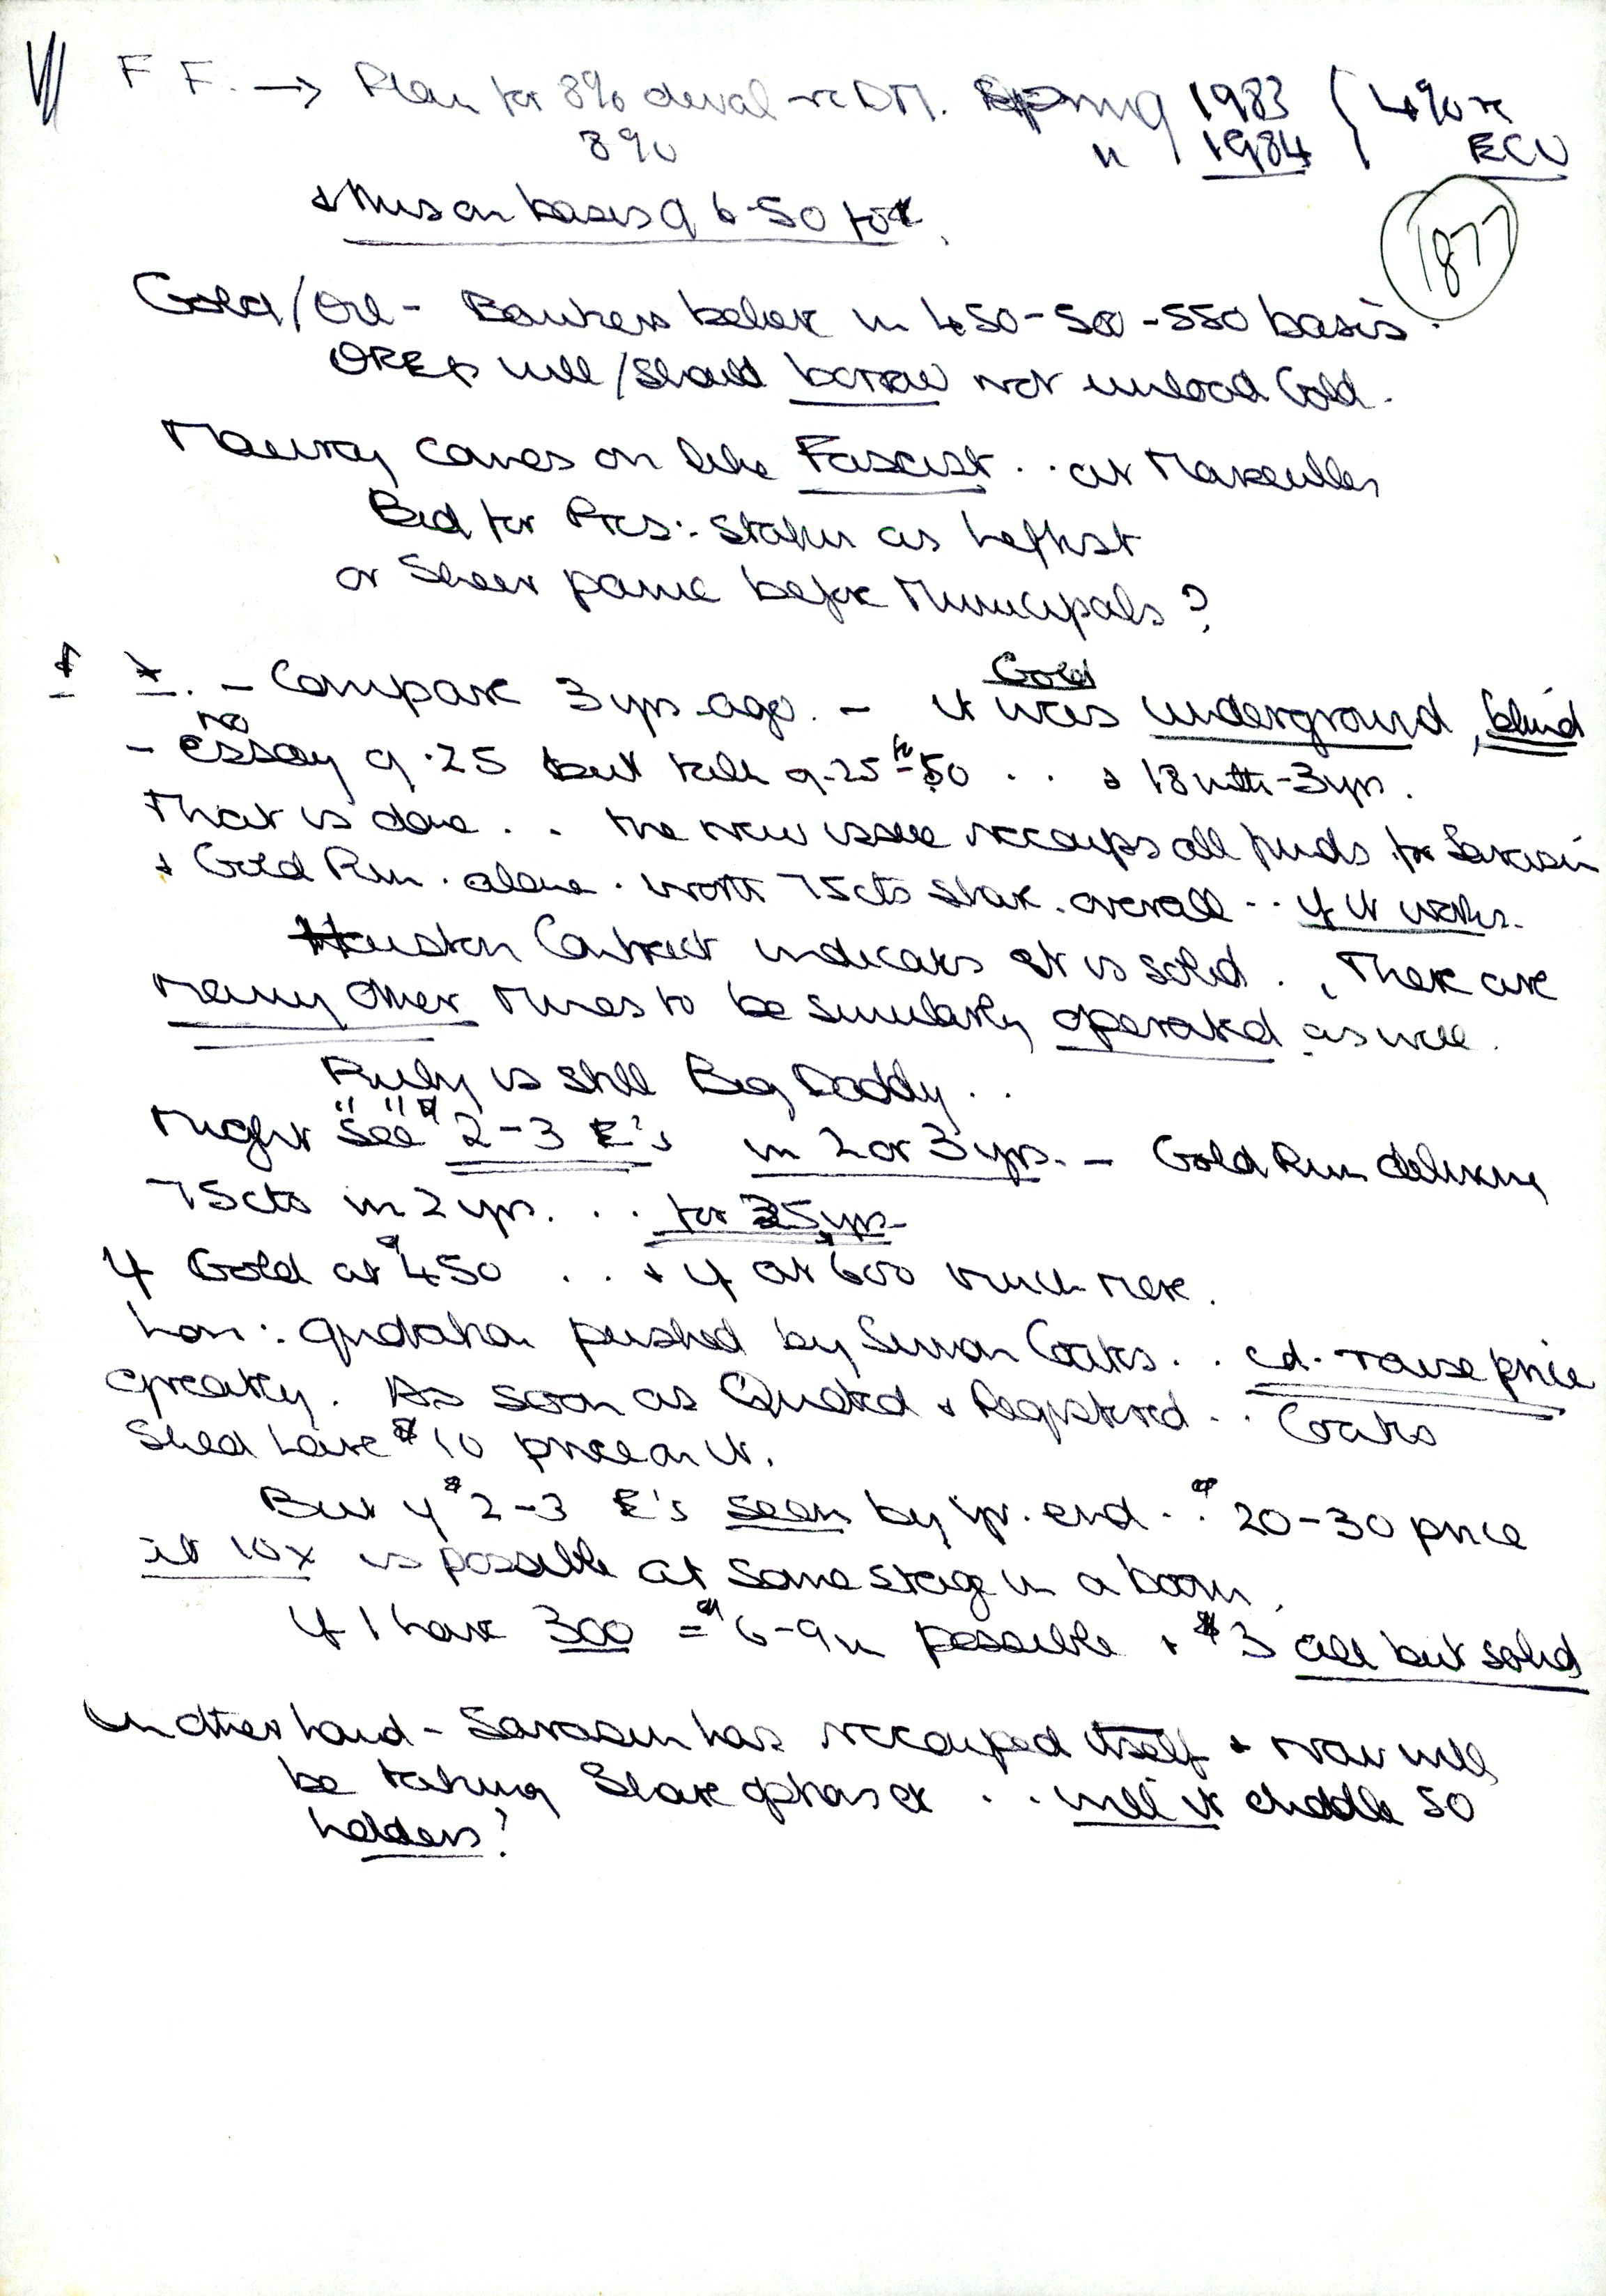 F F. → Plan for 8% deval re DM. Spring 1983 ( 4% re
8% " 1984 ECU
+ this on basis of 6-50 to
1877
Gold/Oil - Bankers believe in 450-500-550 basis.
OPEC will/should borrow not unload Gold.
Mauroy comes on like Fascist .. at Marseilles
Bid for Pres: status as Leftist
or Sheer panic before Municipals?
- Compare 3 yrs ago. - Gold it was underground, blind
- no essay of .25 but talk of .25 to .50 .. + 18 mth-3yrs.
That is done .. the new issue recoups all funds for Sarasin
+ Gold Run. alone. worth 75cts share. overall .. if it works.
Houston Contract indicates it is solid. , There are
many other Mines to be similarly operated as well.
Ruby is still Big Daddy ..
Might "see" $2-3 E's in 2 or 3 yrs. - Gold Run delivering
75cts in 2 yrs. ... for 25 yrs
If Gold at $450 ... + if at 600 much more.
Lon: quotation pushed by Simon Coates .. cd. raise price
greatly. As soon as Quoted + Registered .. Coates
Shld have $10 price on it.
But if $2-3 E's seen by yr. end .. $20-30 price
at 10x is possible at some stage in a boom.
If I have 300 = $6-9m possible + $3 all but solid
On other hand - Sarasin has recouped itself + now will
be taking Share options etc .. will it diddle SO
holders?